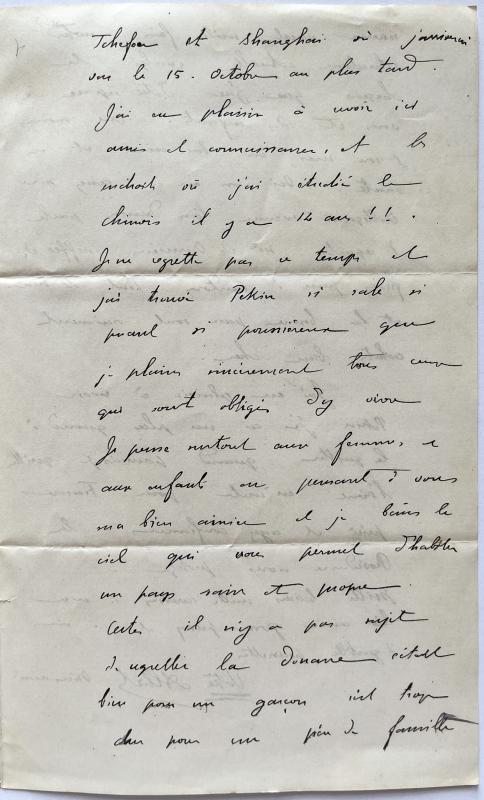 Tchefou et Shanghai où j'arriverai
vers le 15. Octobre au plus tard.
J'ai eu plaisir à revoir ici
amis et connaissances, et les
endroits où j'ai étudié le
chinois il y a 14 ans!!.
Je ne regrette pas ce temps et
j'ai trouvé Pekin si sale si
puant si poussiéreux que
je plains sincèrement tous ceux
qui sont obligés d'y vivre
Je pense surtout aux femmes et
aux enfants en pensant à vous
ma bien aimée et je bénis le
ciel qui vous permet d'habiter
un pays sain et propre.
Certes il n'y a pas sujet
de regretter la Douane c'était
bien pour un garçon c'est trop
dur pour un père de famille